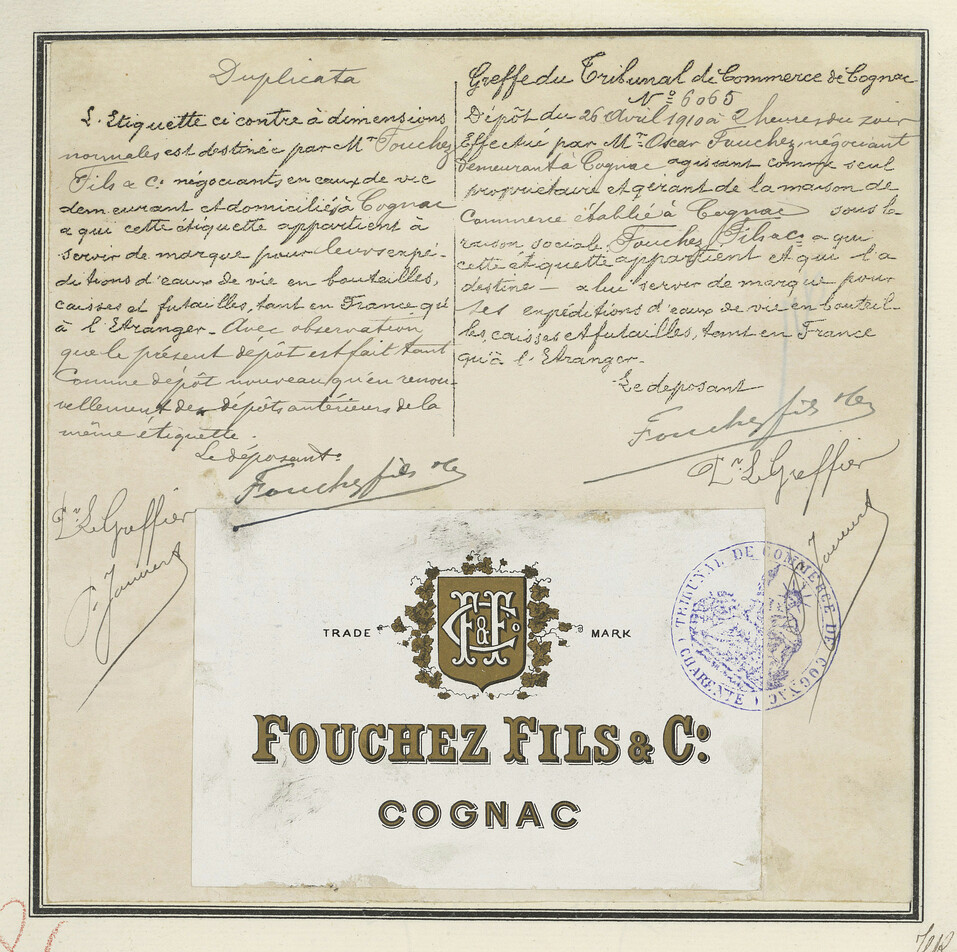 Duplicata
L'Etiquette ci contre à dimensions
normales est destinée par Mr Fouchez
Fils & Co négociants en eaux de vie
demeurant et domiciliés à Cognac
a qui cette étiquette appartient à
servir de marque pour leurs expé-
ditions d'eaux de vie en bouteilles,
caisses et futailles, tant en France qu'
à l'Etranger. Avec observation
que le présent dépôt est fait tant
comme dépôt nouveau qu'en renou-
vellement des dépôts antérieurs de la
même étiquette.
Le déposant
Fouchez fils & Cie
Pr Le Greffier
Greffe du Tribunal de Commerce de Cognac
No 6065
Dépôt du 26 Avril 1910 à 2 heures du soir
Effectué par Mr Oscar Fouchez, négociant
demeurant à Cognac agissant comme seul
propriétaire et gérant de la maison de
Commerce établie à Cognac sous la
raison sociale Fouchez Fils & Co a qui
cette étiquette appartient et qui l'a
destine - a lui servir de marque pour
ses expéditions d'eaux de vie en bouteil-
les, caisses et futailles, tant en France
qu'à l'Etranger.-
Le deposant
Fouchez fils & Cie
Pr Le Greffier
TRIBUNAL DE COMMERCE DE COGNAC
(CHARENTE)
TRADE MARK
CF&Fo
FOUCHEZ FILS & Co.
COGNAC